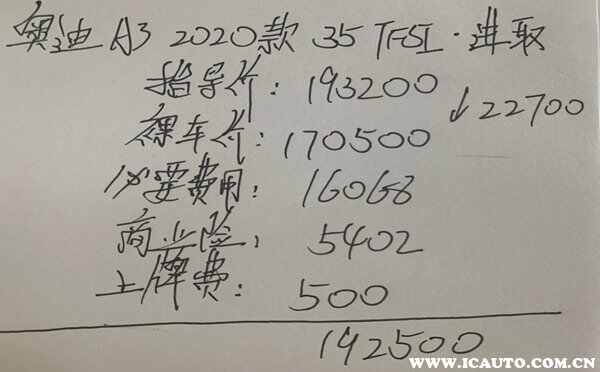 奥迪 A3 2020款 35 TFSI·进取
指导价: 193200
↓22700
裸车价: 170500
必要费用: 16068
商业险: 5402
上牌费: 500
192500
WWW.ICAUTO.COM.CN